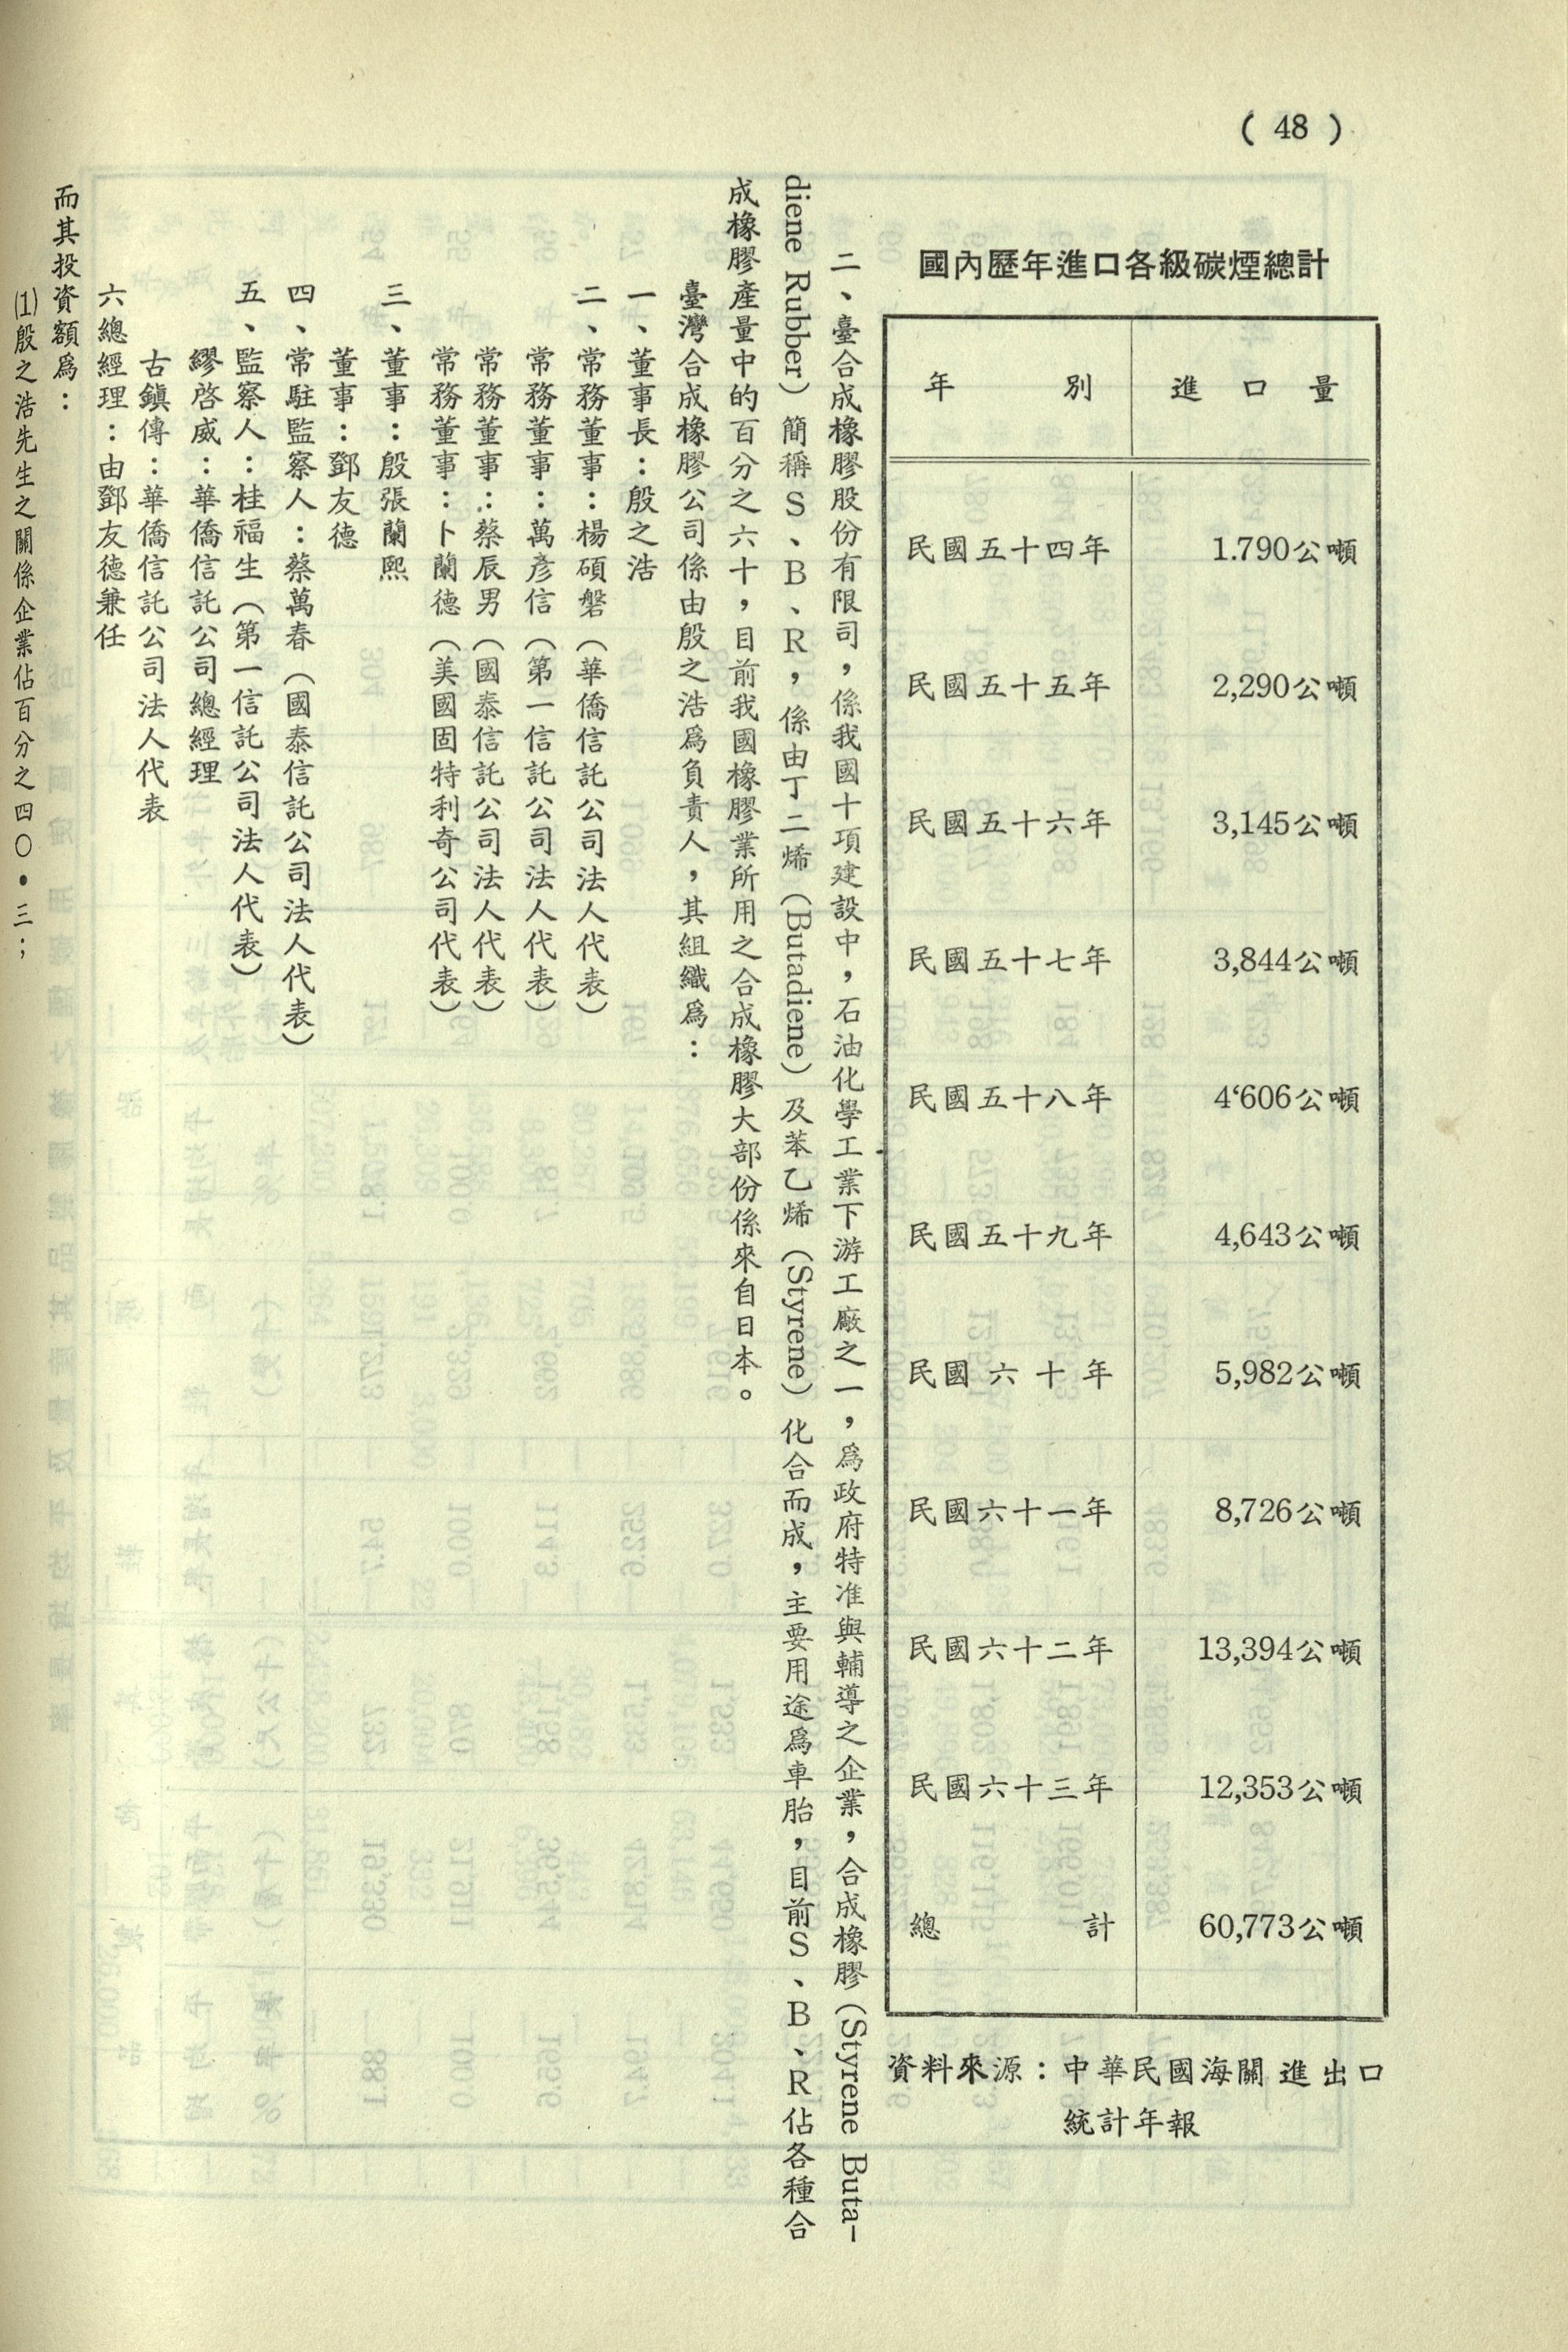 ( 48 )
國內歷年進口各級碳煙總計
年別 進口量
民國五十四年 1.790公噸
民國五十五年 2,290公噸
民國五十六年 3,145公噸
民國五十七年 3,844公噸
民國五十八年 4‘606公噸
民國五十九年 4,643公噸
民國六十年 5,982公噸
民國六十一年 8,726公噸
民國六十二年 13,394公噸
民國六十三年 12,353公噸
總計 60,773公噸
資料來源：中華民國海關進出口
統計年報
二、臺合成橡膠股份有限司，係我國十項建設中，石油化學工業下游工廠之一，為政府特准與輔導之企業，合成橡膠(Styrene Buta-
diene Rubber) 簡稱S、B、R，係由丁二烯 (Butadiene) 及苯乙烯 (Styrene) 化合而成，主要用途為車胎，目前S、B、R佔各種合
成橡膠產量中的百分之六十，目前我國橡膠業所用之合成橡膠大部份係來自日本。
臺灣合成橡膠公司係由殷之浩為負責人，其組織為：
一、董事長：殷之浩
二、常務董事：楊碩磐（華僑信託公司法人代表）
常務董事：萬彥信（第一信託公司法人代表）
常務董事：蔡辰男（國泰信託公司法人代表）
常務董事：卜蘭德（美國固特利奇公司代表）
三、董事：殷張蘭熙
董事：鄧友德
四、常駐監察人：蔡萬春（國泰信託公司法人代表）
五、監察人：桂福生（第一信託公司法人代表）
繆啓威：華僑信託公司總經理
古鎮傳：華僑信託公司法人代表
六總經理：由鄧友德兼任
而其投資額為：
(1)殷之浩先生之關係企業佔百分之四〇•三；